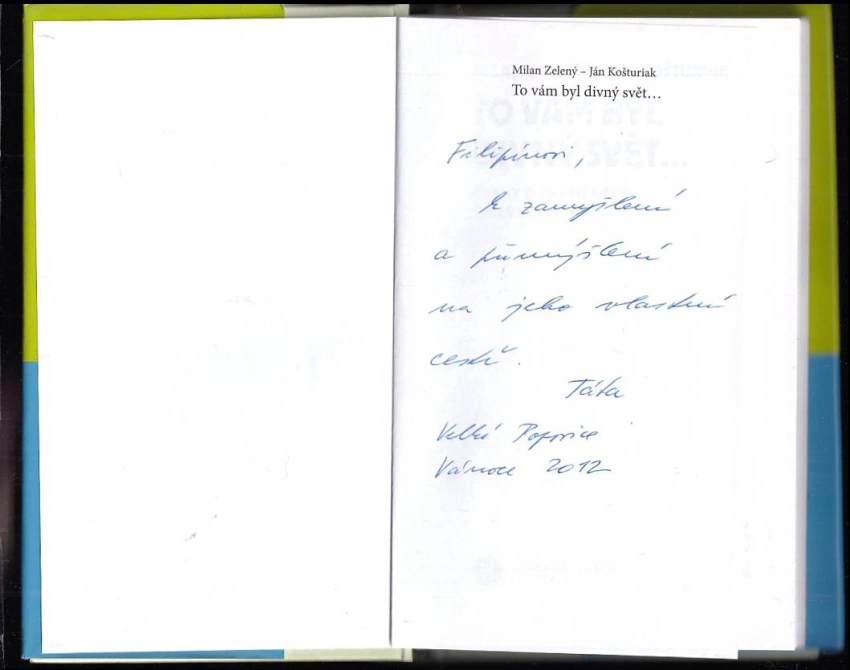 Milan Zelený – Ján Košturiak
To vám byl divný svět…
Filipínovi,
k zamyšlení
a přemýšlení
na jeho vlastní
cestě.
Táta
Velké Popovice
Vánoce 2012